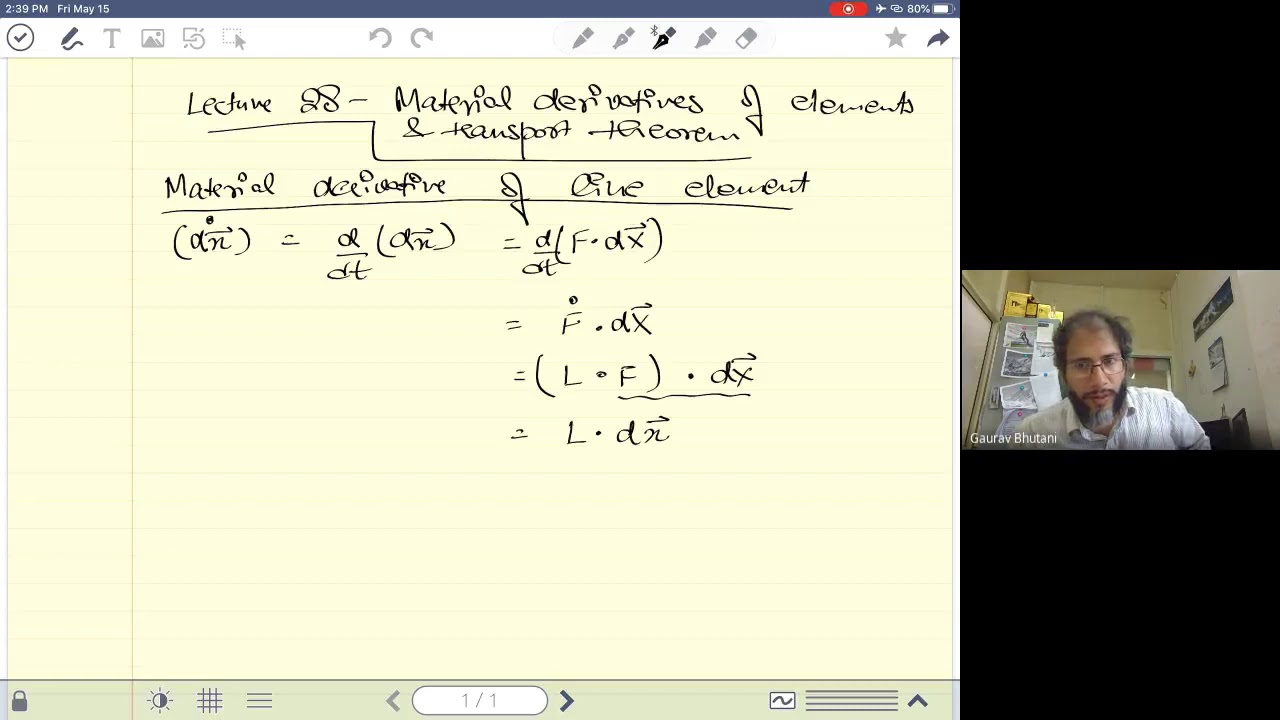 2:39 PM Fri May 15
80%
T
Lecture 28 - Material derivatives of elements
& transport theorem
Material derivative of line element
(dẋ⃗) = d/dt (dx⃗) = d/dt (F · dX⃗)
= Ḟ · dX⃗
= (L · F) · dX⃗
= L · dx⃗
Gaurav Bhutani
1 / 1